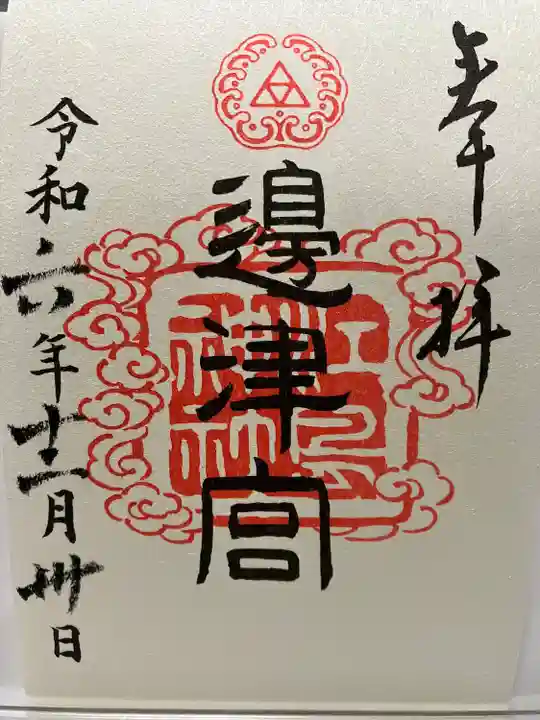 奉拝
邊津宮
令和六年十二月卅日